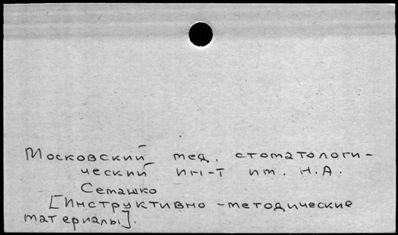 Московский мед. стоматологи-
ческий ин-т им. Н.А.
Семашко
[Инструктивно-методические
материалы].